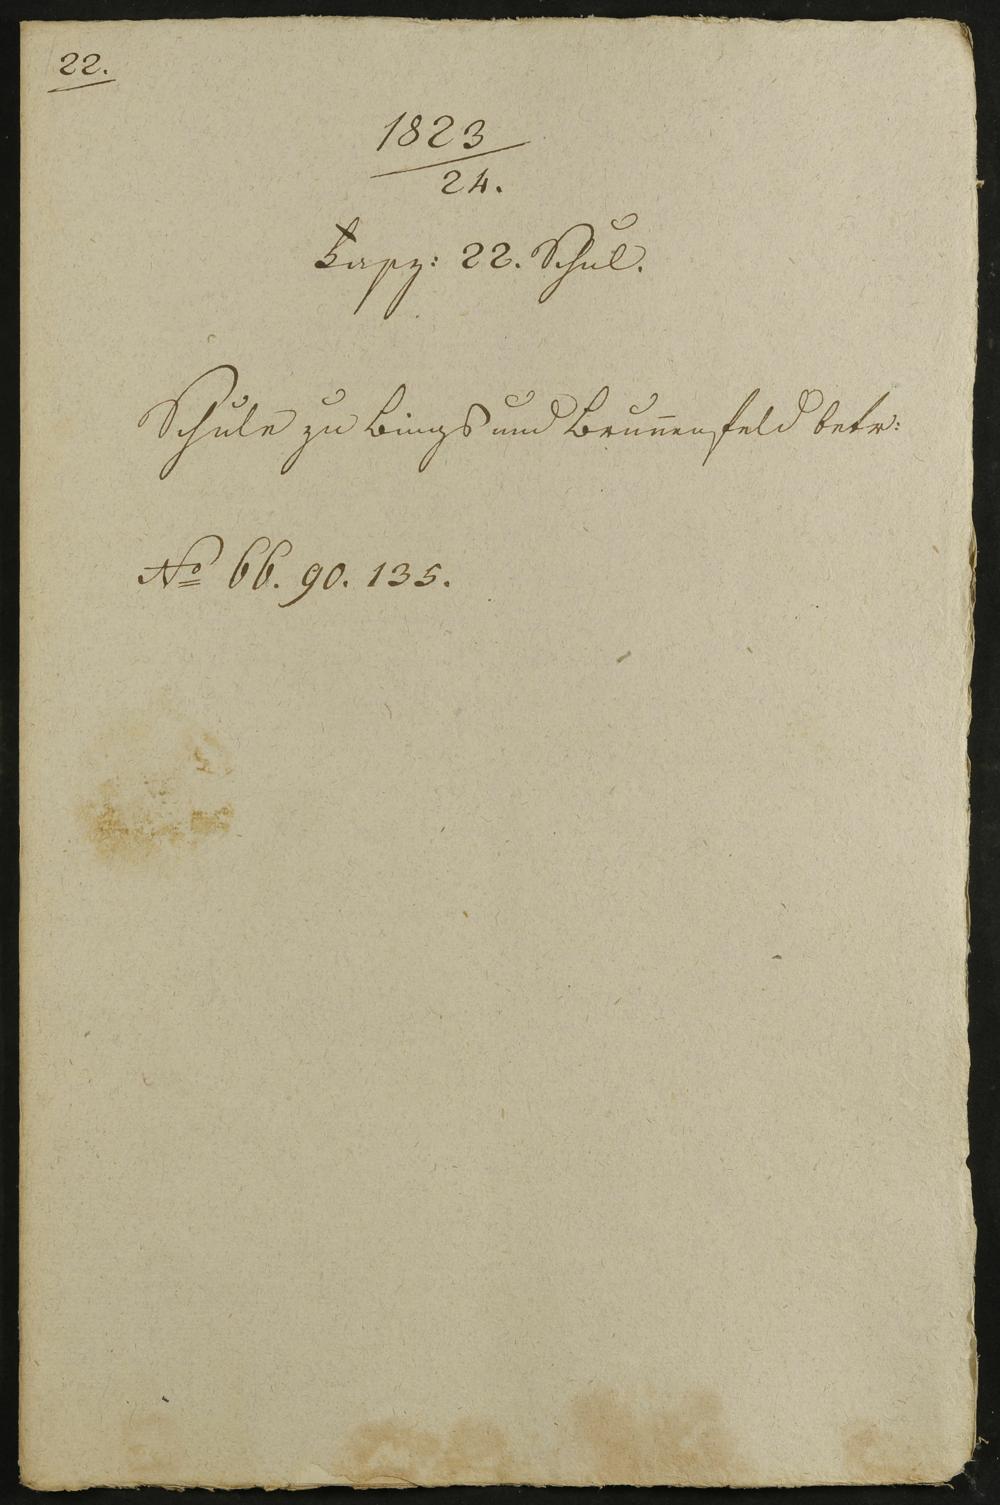 22.
1823
24.
Fasz: 22. Schul.
Schule zu Bings und Brunnenfeld betr:
No 66. 90. 135.